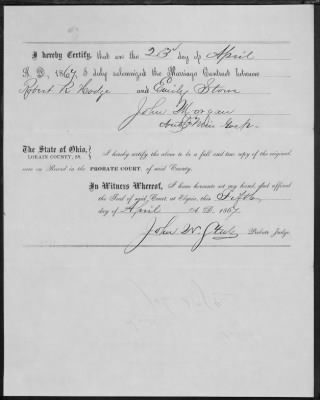 I hereby Certify, that on the 23rd day of April
A. D., 1867, I duly solemnized the Marriage Contract between
Robert R. Hodge and Emily Stone
John Morgan
The State of Ohio,
LORAIN COUNTY, SS.
I hereby certify the above to be a full and true copy of the original
now on Record in the PROBATE COURT of said County.
In Witness Whereof, I have hereunto set my hand, and affixed
the Seal of said Court at Elyria, this Fifth
day of April A. D. 1867
John W. Steele Probate Judge